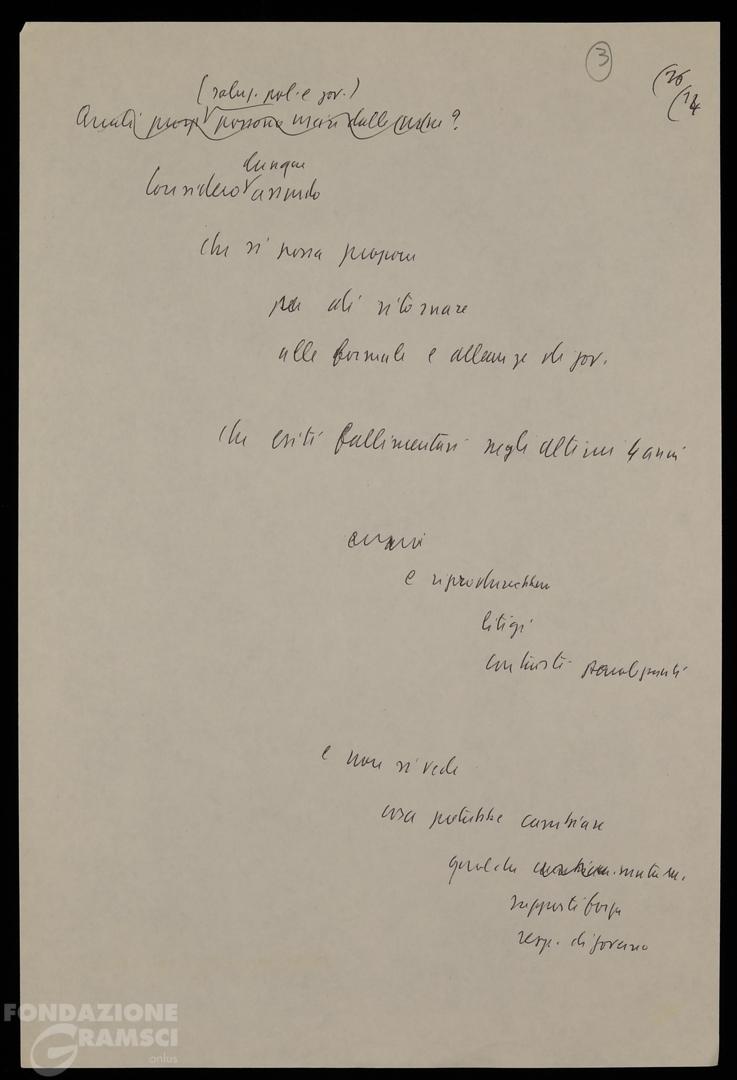 3
(26
(14
(soluz. pol. e gov.)
Quali prosp possono uscire dalle urne?
dunque
Considero assurdo
che si possa proporre
di ritornare
alle formule e alleanze di gov.
che esiti fallimentari negli ultimi 4 anni
e riprodurrebbero
litigi
contrasti
e non si vede
cosa potrebbe cambiare
qualche mutam.
rapporti forza
resp. di governo
FONDAZIONE
GRAMSCI
onlus